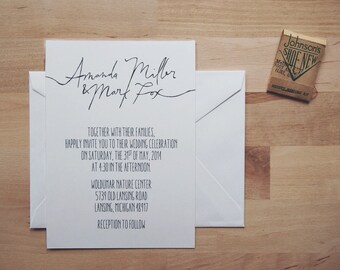 Amanda Miller
& Mark Fox
TOGETHER WITH THEIR FAMILIES,
HAPPILY INVITE YOU TO THEIR WEDDING CELEBRATION
ON SATURDAY, THE 31ST OF MAY, 2014
AT 4:30 IN THE AFTERNOON.
WOLDUMAR NATURE CENTER
5739 OLD LANSING ROAD
LANSING, MICHIGAN 48917
RECEPTION TO FOLLOW
Johnson's
SHUE-NEW